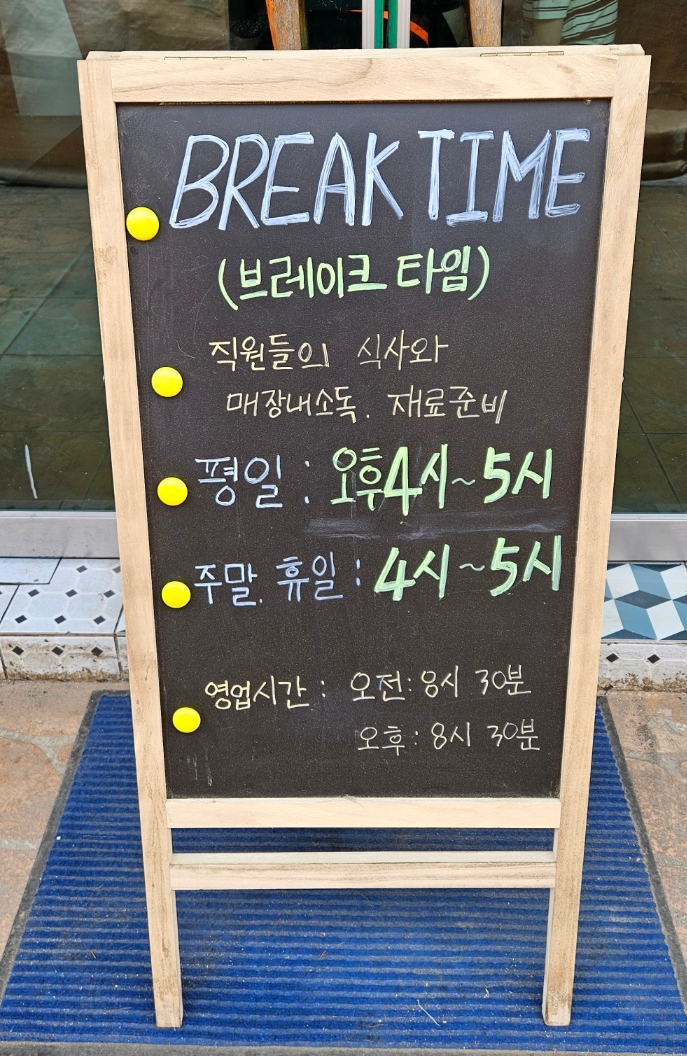 BREAK TIME
(브레이크 타임)
직원들의 식사와
매장내소독. 재료준비
평일 : 오후4시~5시
주말. 휴일 : 4시~5시
영업시간 : 오전: 8시 30분
오후: 8시 30분